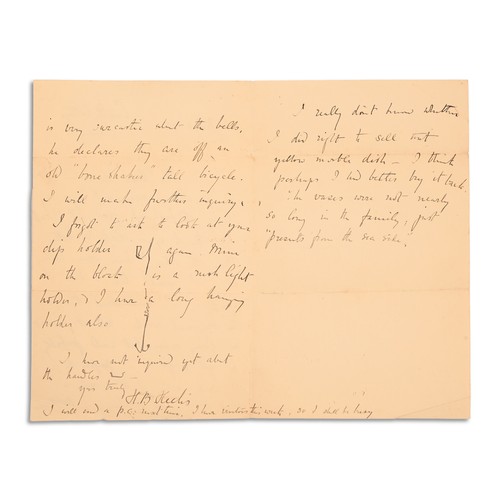 is very sarcastic about the bells,
he declares they are off an
old "bone shaker" tall bicycle.
I will make further inquiry.
I forgot to ask to look at your
clip holder again. Mine
on the block is a rush light
holder, & I have a long hanging
holder also
I have not inquired yet about
the handles and
yrs truly
H. B. Heelis
I will send a p.c. next time, I have visitors this week, so I shall be busy
I really don't know whether
I did right to sell that
yellow marble dish — I think
perhaps I had better buy it back.
The vases was not nearly
so long in the family, just
"presents from the sea side."